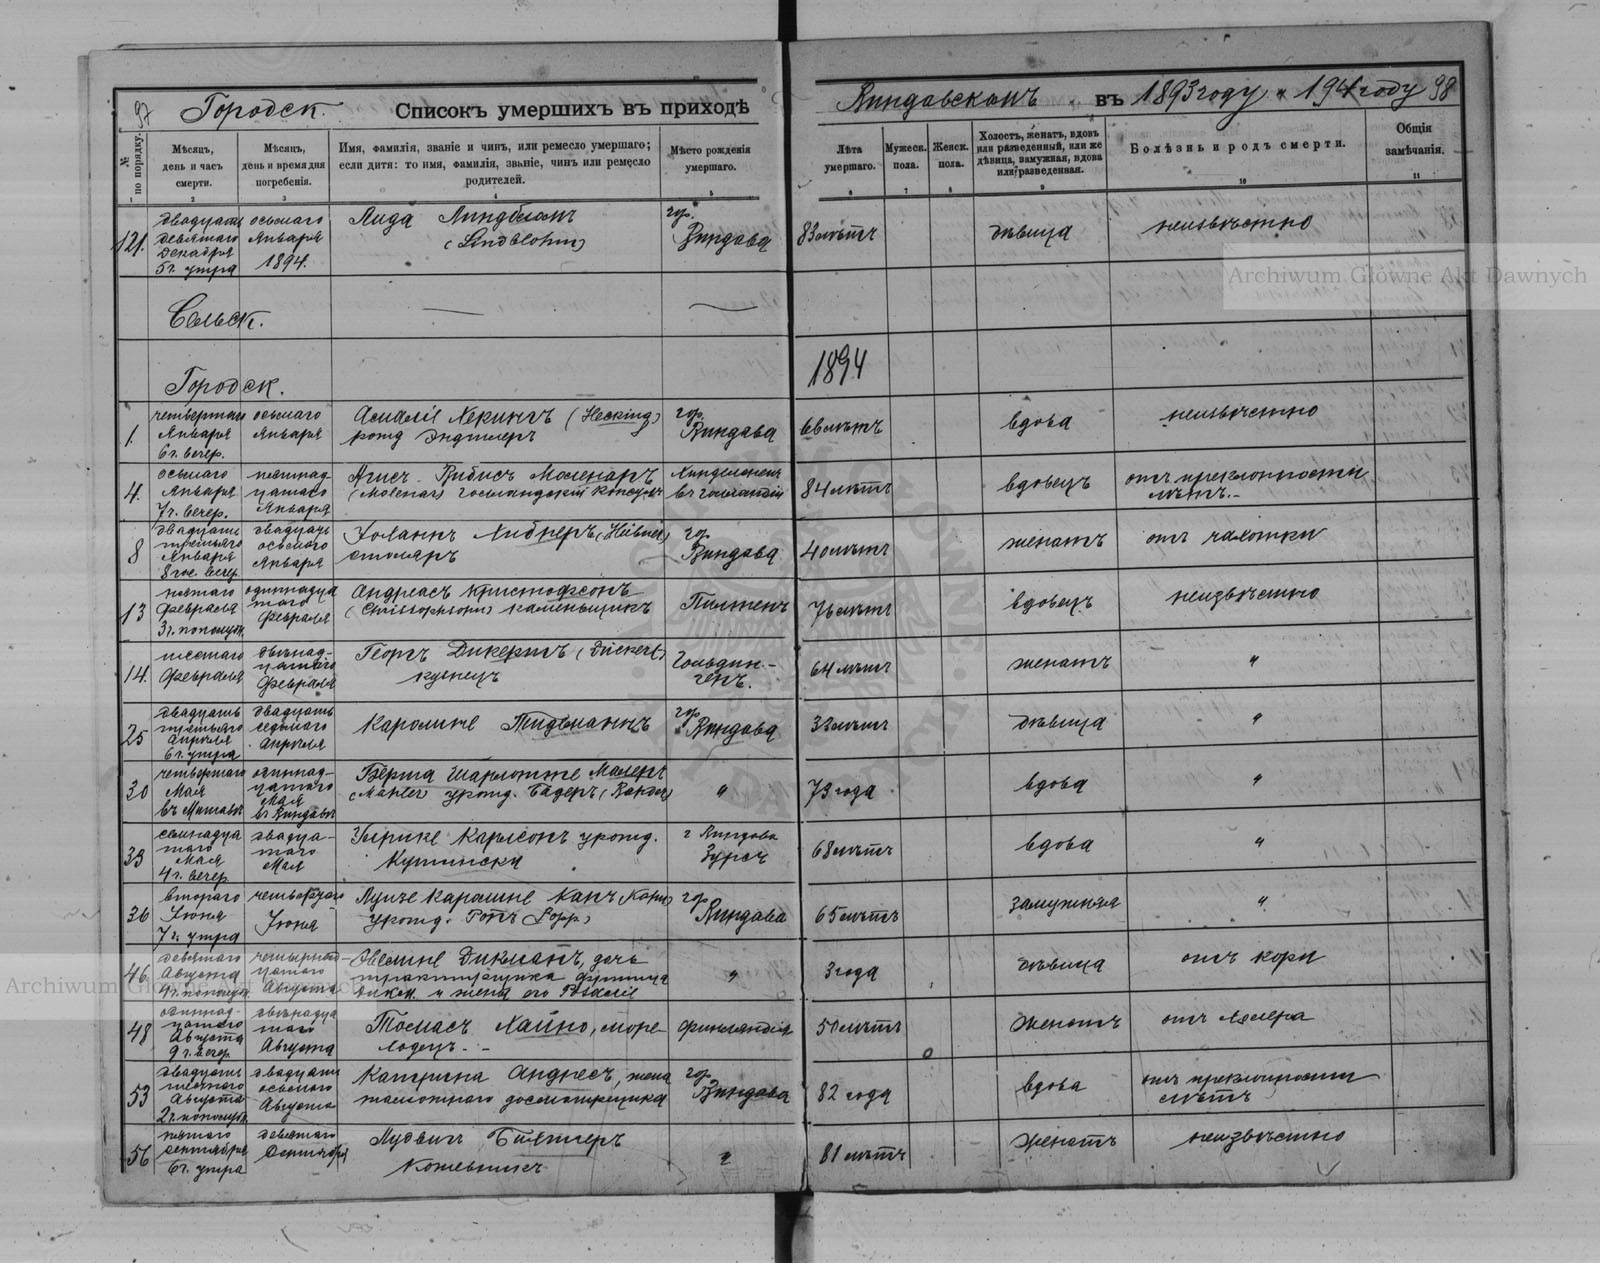 97 Городск. Списокъ умершихъ въ приходѣ Виндавскомъ въ 1893 году и 194 году 98
№ по порядку.
Мѣсяцъ, день и часъ смерти.
Мѣсяцъ, день и время дня погребенія.
Имя, фамилія, званіе и чинъ, или ремесло умершаго;
если дитя: то имя, фамилія, званіе, чинъ или ремесло
родителей.
Мѣсто рожденія умершаго.
Лѣта умершаго.
Мужеск. пола.
Женск. пола.
Холостъ, женатъ, вдовъ
или разведенный, или же
дѣвица, замужная, вдова
или разведенная.
Болѣзнь и родъ смерти.
Общія замѣчанія.
1 2 3 4 5 6 7 8 9 10 11
121.
двадцать
девятаго
Декабря
5 ч. утра
осьмаго
Января
1894.
Лида Линдбломъ
(Lindblohm)
гор.
Виндава
83 лѣтъ
дѣвица
неизвѣстно
Сельск.
Городск.
1894
1.
четвертаго
Января
6 ч. вечер.
осьмаго
Января
Амаліе Хекингъ (Hecking)
рожд Эндтлеръ
гор.
Виндава
66 лѣтъ
вдова
неизвѣстно
4.
осьмаго
Января
7 ч. вечер.
пятнад-
цатаго
Января
Моленаръ
(Molenar) голландскій консулъ
въ Голландіи
84 лѣтъ
вдовецъ
отъ преклонности
лѣтъ.-
8
двадцать
третьяго
Января
8 час. вечер.
двадцать
осьмаго
Января
Іоганнъ Хибнеръ (Hübner)
столяръ
гор
Виндава
40 лѣтъ
женатъ
отъ чахотки
13
пятаго
Февраля
3 ч. пополудн.
одиннадца
таго
Февраля
Андреасъ Кристофсонъ
(Christophsohn) каменьщикъ
Пильтенъ
76 лѣтъ
вдовецъ
неизвѣстно
14.
шестаго
Февраля
двѣнад-
цатаго
Февраля
Георгъ Дикертъ (Dückert)
кузнецъ
Гольдин-
генъ.
64 лѣтъ
женатъ
"
25
двадцать
третьяго
Апрѣля
6 ч. утра
двадцать
седьмаго
Апрѣля
Каролине Тидеманнъ
гор
Виндава
33 лѣтъ
дѣвица
"
30
четвертаго
Мая
въ Митавѣ
одиннад-
цатаго
Мая
въ Виндавѣ
Берта Шарлотте Малеръ
(Mahler) урожд. Бадеръ
"
73 года
вдова
"
33
семнадца
таго
Мая
4 ч. вечер.
двадца-
таго
Мая
Ульрике Карлсонъ урожд.
г Виндава
68 лѣтъ
вдова
"
36
втораго
Іюня
7 ч. утра
четвертаго
Іюня
Луизе Каролине Канъ
урожд. Гопъ
гор
Виндава
65 лѣтъ
замужняя
"
46.
девятаго
Августа
4 ч. пополудн.
четырнад-
цатаго
Августа
Эвелине Дикманъ, дочь
трактирщика Фрица
Дикм. и жены его Розаліе
"
3 года
дѣвица
отъ кори
48
одиннад-
цатаго
Августа
9 ч. вечер.
двѣнадца
таго
Августа
Томасъ Хайно, море-
ходецъ.-
Финляндія
51 лѣтъ
женатъ
отъ холера
53
двадцать
шестаго
Августа
2 ч. пополудн.
двадцать
осьмаго
Августа
Катерина Андресъ, жена
таможнаго досмотрщика
гор
Виндава
82 года
вдова
отъ преклонности
лѣтъ
56
пятаго
Сентября
6 ч. утра
девятаго
Сентября
Лудвигъ
Кожевникъ
"
81 лѣтъ
женатъ
неизвѣстно
Archiwum Główne Akt Dawnych
Archiwum Główne Akt Dawnych